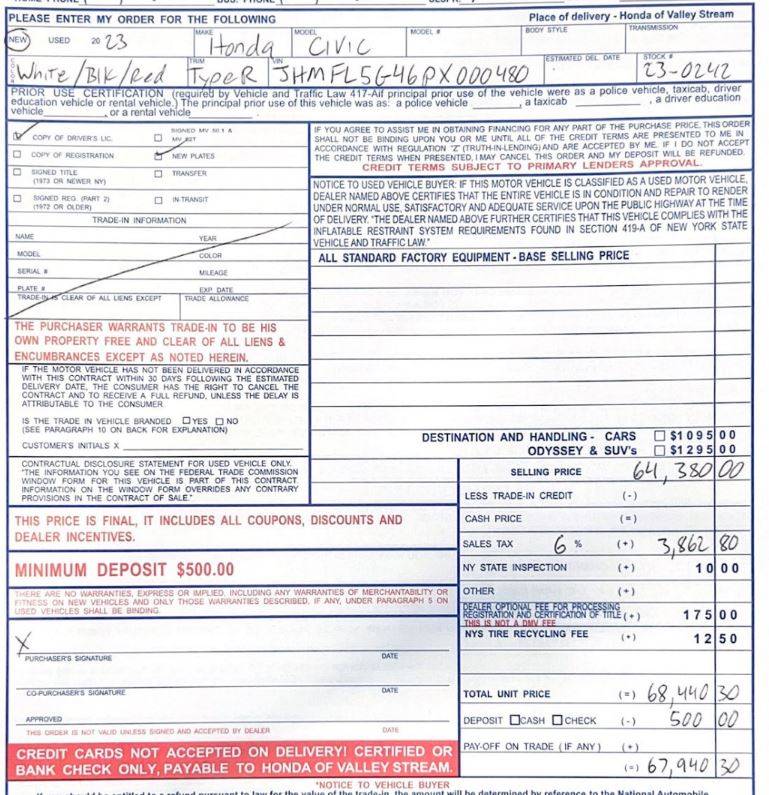 PLEASE ENTER MY ORDER FOR THE FOLLOWING
Place of delivery - Honda of Valley Stream
NEW USED 2023 MAKE Honda MODEL CIVIC MODEL # BODY STYLE TRANSMISSION
White/Blk/Red TRIM TypeR VIN JHMFL5G46PX000480 ESTIMATED DEL. DATE STOCK # 23-0242
PRIOR USE CERTIFICATION (required by Vehicle and Traffic Law 417-Aif principal prior use of the vehicle were as a police vehicle, taxicab, driver
education vehicle or rental vehicle.) The principal prior use of this vehicle was: a police vehicle ______, a taxicab ______, a driver education
vehicle ______, or a rental vehicle ______.
COPY OF DRIVER'S LIC.
COPY OF REGISTRATION NEW PLATES
SIGNED TITLE TRANSFER
(1973 OR NEWER NY)
SIGNED REG. (PART 2) IN-TRANSIT
(1972 OR OLDER)
TRADE-IN INFORMATION
NAME YEAR
MODEL COLOR
SERIAL # MILEAGE
PLATE # EXP. DATE
TRADE-IN IS CLEAR OF ALL LIENS EXCEPT TRADE ALLOWANCE
THE PURCHASER WARRANTS TRADE-IN TO BE HIS
OWN PROPERTY FREE AND CLEAR OF ALL LIENS &
ENCUMBRANCES EXCEPT AS NOTED HEREIN.
IF THE MOTOR VEHICLE HAS NOT BEEN DELIVERED IN ACCORDANCE
WITH THIS CONTRACT WITHIN 30 DAYS FOLLOWING THE ESTIMATED
DELIVERY DATE, THE CONSUMER HAS THE RIGHT TO CANCEL THE
CONTRACT AND TO RECEIVE A FULL REFUND, UNLESS THE DELAY IS
ATTRIBUTABLE TO THE CONSUMER
IS THE TRADE IN VEHICLE BRANDED ☐YES ☐NO
(SEE PARAGRAPH 10 ON BACK FOR EXPLANATION)
CUSTOMER'S INITIALS X
CONTRACTUAL DISCLOSURE STATEMENT FOR USED VEHICLE ONLY.
"THE INFORMATION YOU SEE ON THE FEDERAL TRADE COMMISSION
WINDOW FORM FOR THIS VEHICLE IS PART OF THIS CONTRACT.
INFORMATION ON THE WINDOW FORM OVERRIDES ANY CONTRARY
PROVISIONS IN THE CONTRACT OF SALE."
IF YOU AGREE TO ASSIST ME IN OBTAINING FINANCING FOR ANY PART OF THE PURCHASE PRICE, THIS ORDER
SHALL NOT BE BINDING UPON YOU OR ME UNTIL ALL OF THE CREDIT TERMS ARE PRESENTED TO ME IN
ACCORDANCE WITH REGULATION "Z" (TRUTH-IN-LENDING) AND ARE ACCEPTED BY ME. IF I DO NOT ACCEPT
THE CREDIT TERMS WHEN PRESENTED, I MAY CANCEL THIS ORDER AND MY DEPOSIT WILL BE REFUNDED.
CREDIT TERMS SUBJECT TO PRIMARY LENDERS APPROVAL.
NOTICE TO USED VEHICLE BUYER: IF THIS MOTOR VEHICLE IS CLASSIFIED AS A USED MOTOR VEHICLE,
DEALER NAMED ABOVE CERTIFIES THAT THE ENTIRE VEHICLE IS IN CONDITION AND REPAIR TO RENDER
UNDER NORMAL USE, SATISFACTORY AND ADEQUATE SERVICE UPON THE PUBLIC HIGHWAY AT THE TIME
OF DELIVERY. "THE DEALER NAMED ABOVE FURTHER CERTIFIES THAT THIS VEHICLE COMPLIES WITH THE
INFLATABLE RESTRAINT SYSTEM REQUIREMENTS FOUND IN SECTION 419-A OF NEW YORK STATE
VEHICLE AND TRAFFIC LAW."
ALL STANDARD FACTORY EQUIPMENT - BASE SELLING PRICE
DESTINATION AND HANDLING - CARS ☐ $1095 00
ODYSSEY & SUV's ☐ $1295 00
SELLING PRICE 64,380 00
LESS TRADE-IN CREDIT (-)
CASH PRICE (=)
SALES TAX 6 % (+) 3,862 80
NY STATE INSPECTION (+) 10 00
OTHER (+)
DEALER OPTIONAL FEE FOR PROCESSING
REGISTRATION AND CERTIFICATION OF TITLE (+) 175 00
THIS IS NOT A DMV FEE
NYS TIRE RECYCLING FEE (+) 12 50
TOTAL UNIT PRICE (=) 68,440 30
DEPOSIT ☐CASH ☐CHECK (-) 500 00
PAY-OFF ON TRADE (IF ANY) (+)
(=) 67,940 30
THIS PRICE IS FINAL, IT INCLUDES ALL COUPONS, DISCOUNTS AND
DEALER INCENTIVES.
MINIMUM DEPOSIT $500.00
THERE ARE NO WARRANTIES, EXPRESS OR IMPLIED, INCLUDING ANY WARRANTIES OF MERCHANTABILITY OR
FITNESS ON NEW VEHICLES AND ONLY THOSE WARRANTIES DESCRIBED, IF ANY, UNDER PARAGRAPH 5 ON
USED VEHICLES SHALL BE BINDING.
X
PURCHASER'S SIGNATURE DATE
CO-PURCHASER'S SIGNATURE DATE
APPROVED
THIS ORDER IS NOT VALID UNLESS SIGNED AND ACCEPTED BY DEALER DATE
CREDIT CARDS NOT ACCEPTED ON DELIVERY! CERTIFIED OR
BANK CHECK ONLY, PAYABLE TO HONDA OF VALLEY STREAM.
*NOTICE TO VEHICLE BUYER